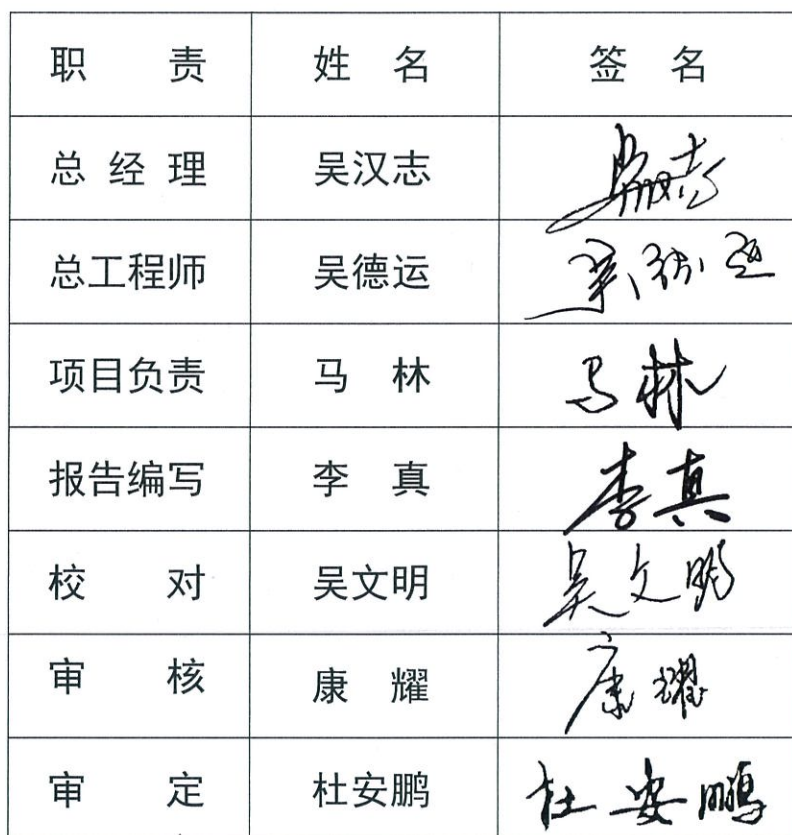 职 责 姓 名 签 名
总 经 理 吴汉志
总工程师 吴德运
项目负责 马 林 马林
报告编写 李 真 李真
校 对 吴文明 吴文明
审 核 康 耀 康耀
审 定 杜安鹏 杜安鹏